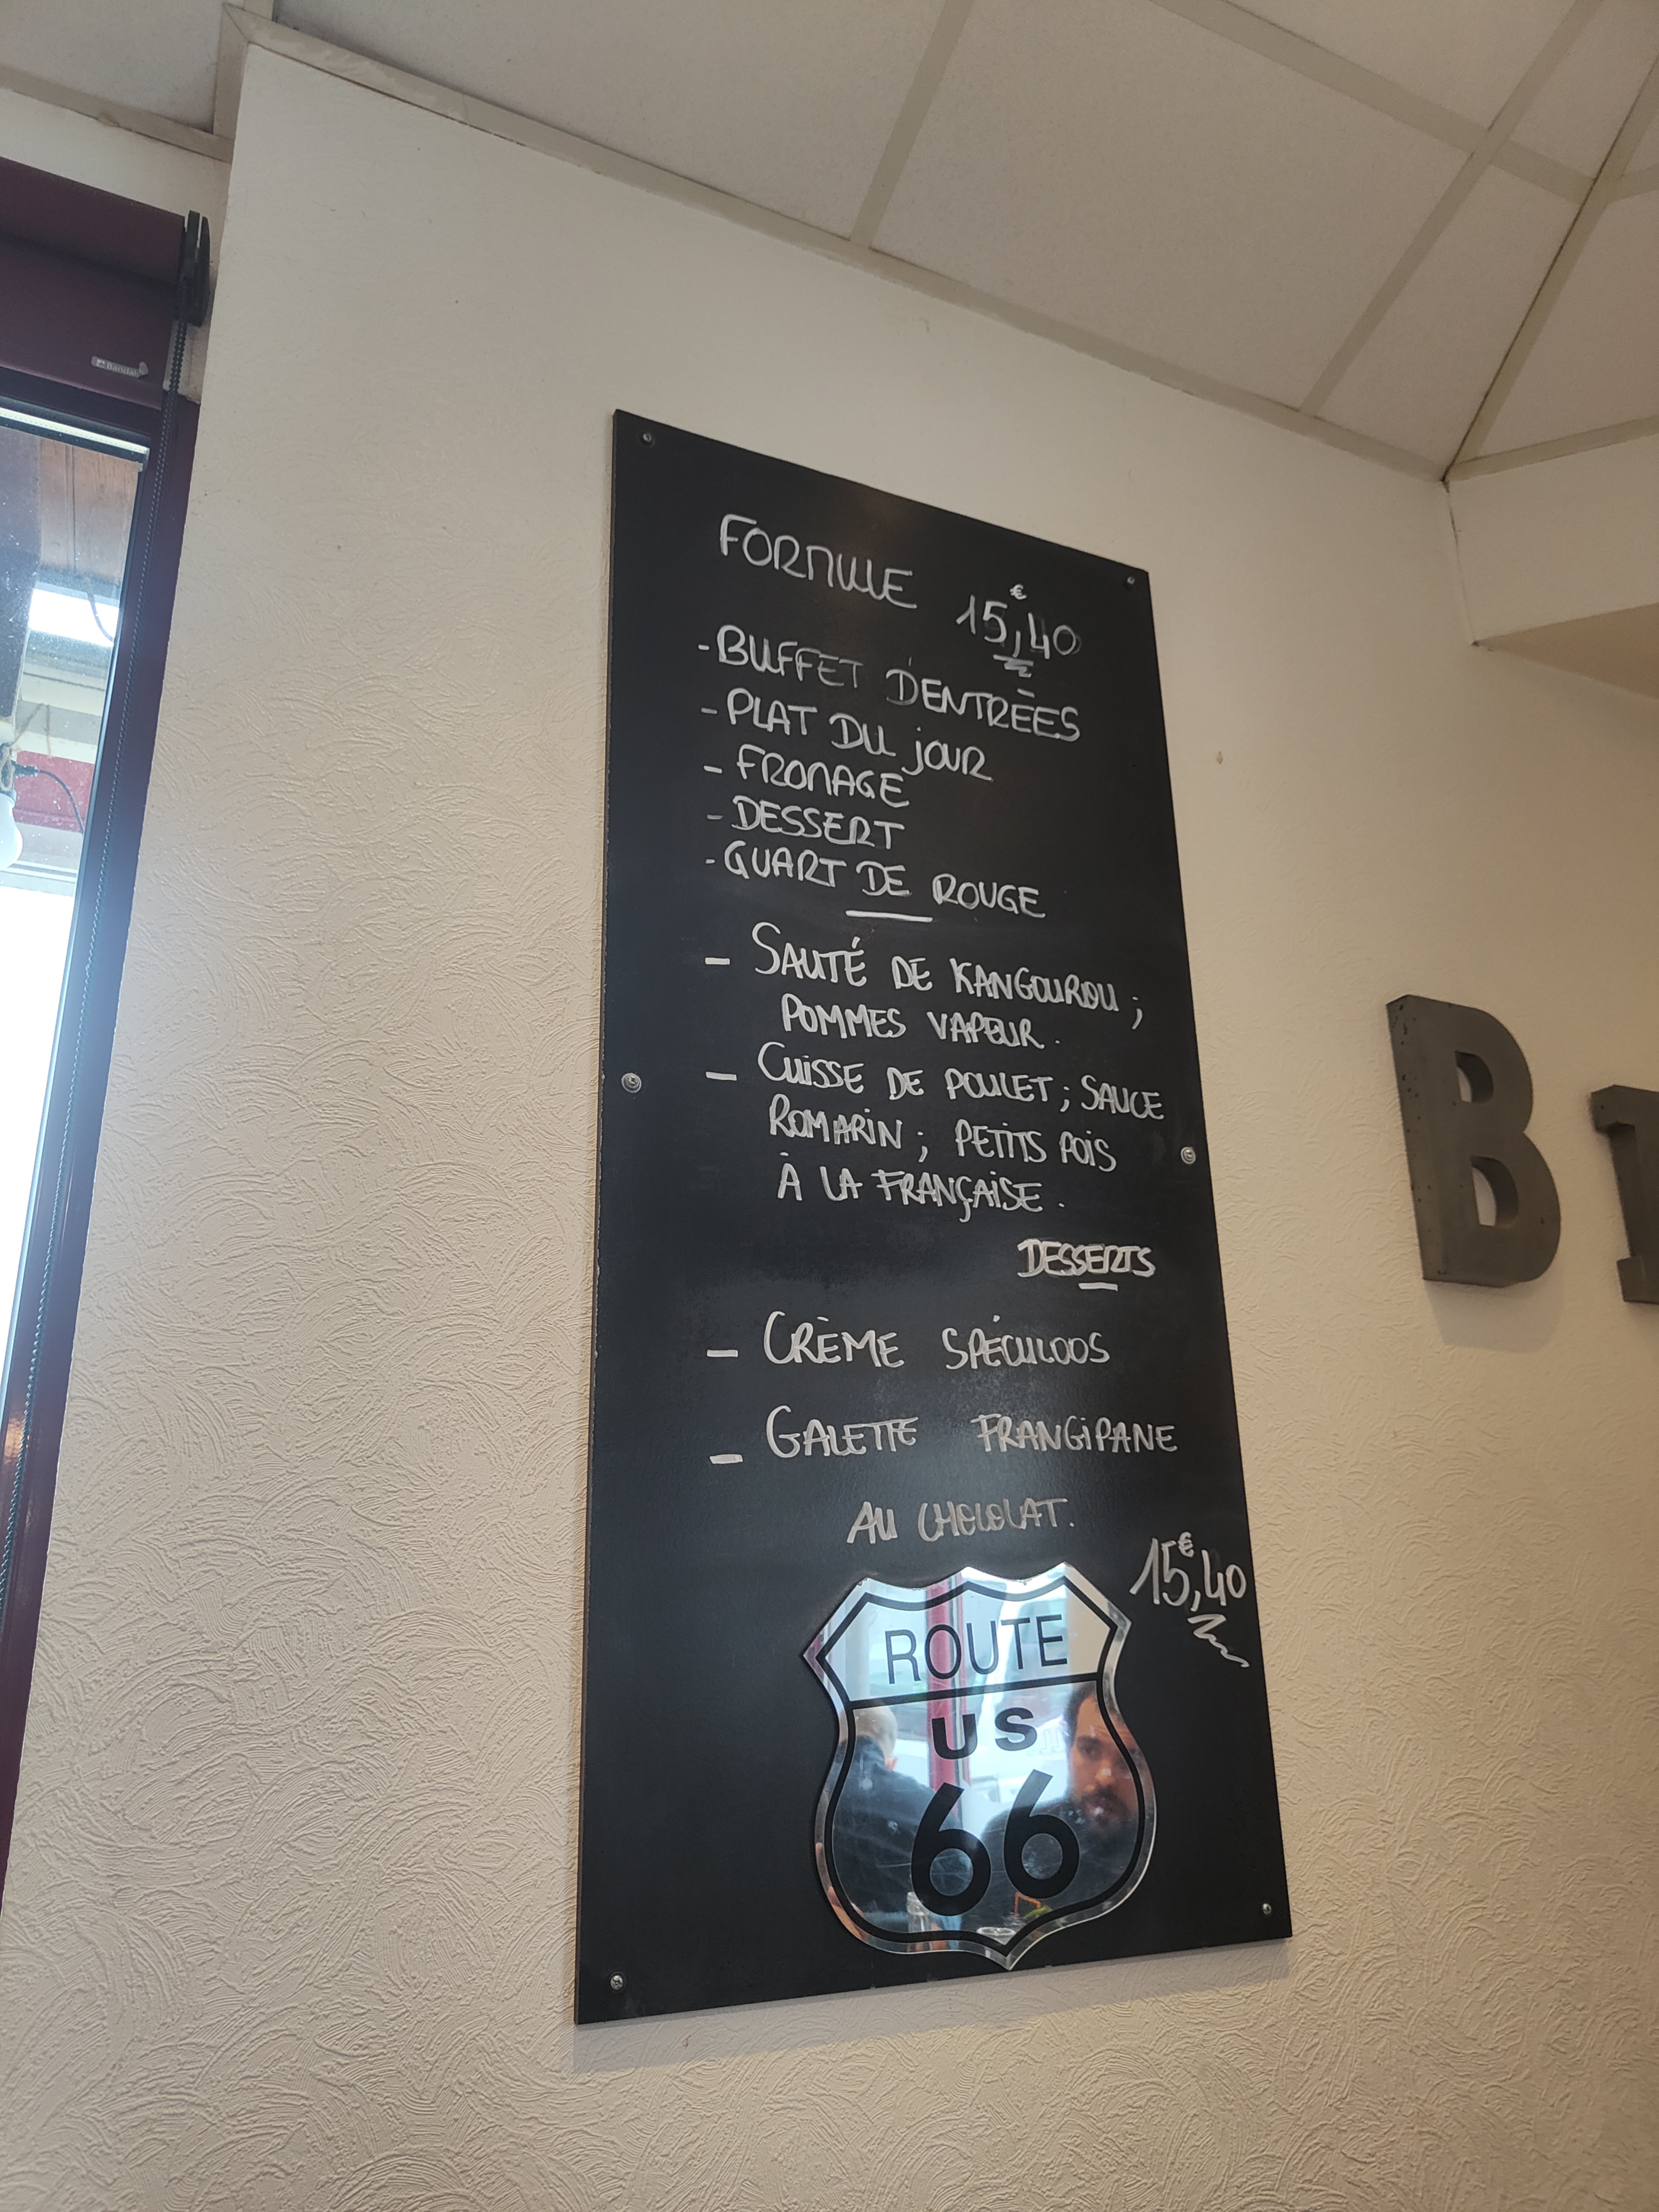 FORMULE 15,40€
- BUFFET D'ENTRÉES
- PLAT DU JOUR
- FROMAGE
- DESSERT
- QUART DE ROUGE
- SAUTÉ DE KANGOUROU ;
POMMES VAPEUR.
- CUISSE DE POULET ; SAUCE
ROMARIN ; PETITS POIS
À LA FRANÇAISE.
DESSERTS
- CRÈME SPÉCULOOS
- GALETTE FRANGIPANE
AU CHOCOLAT.
15,40€
ROUTE
US
66
B